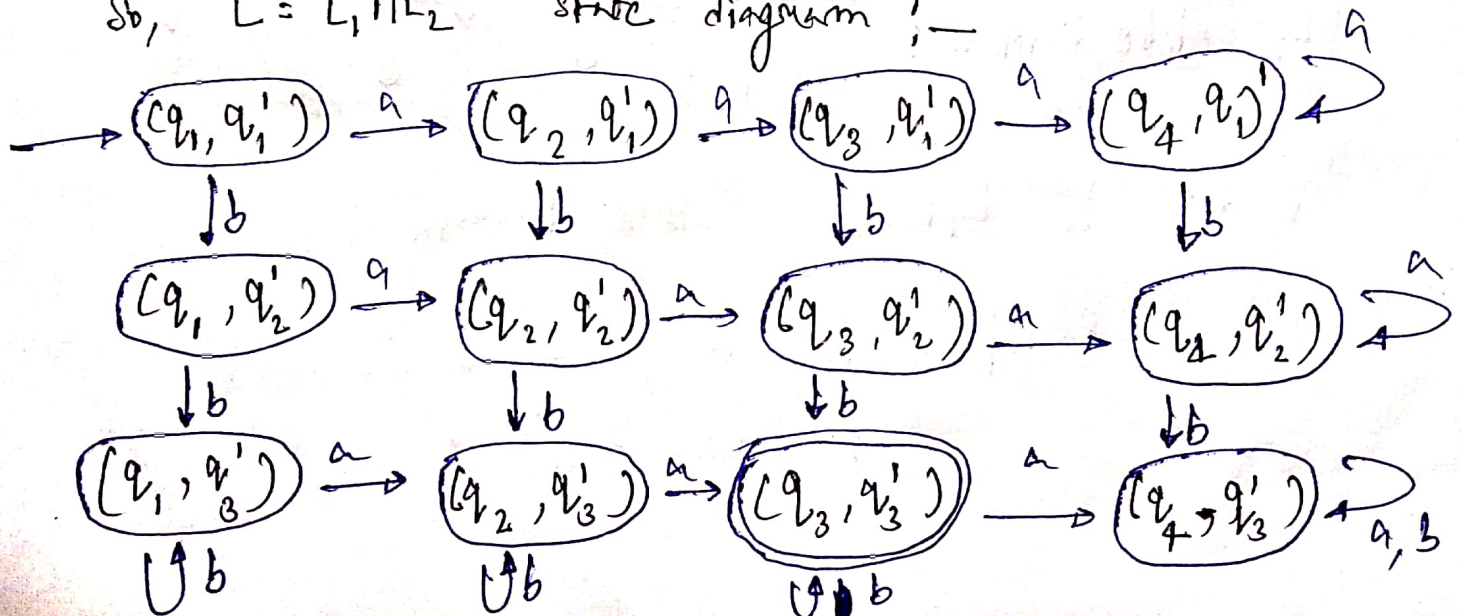 So, L = L₁∩L₂ state diagram :—
a
(q₁, q₁') a (q₂, q₁') a (q₃, q₁') a (q₄, q₁)'
b b b b
a
(q₁, q₂') a (q₂, q₂') a (q₃, q₂') a (q₄, q₂')
b b b b
(q₁, q₃') a (q₂, q₃') a (q₃, q₃') a (q₄, q₃')
a, b
b b b